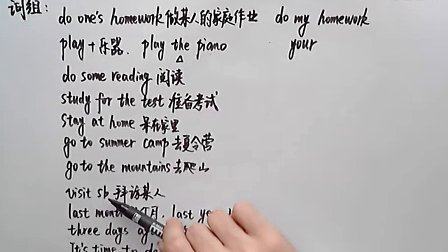 词组: do one's homework 做某人的家庭作业 do my homework
play+乐器. play the piano your
do some reading 阅读
study for the test 准备考试
stay at home 呆在家里
go to summer camp 去夏令营
go to the mountains 去爬山
visit sb 拜访某人
last month 月. last
three days ago
It's time to